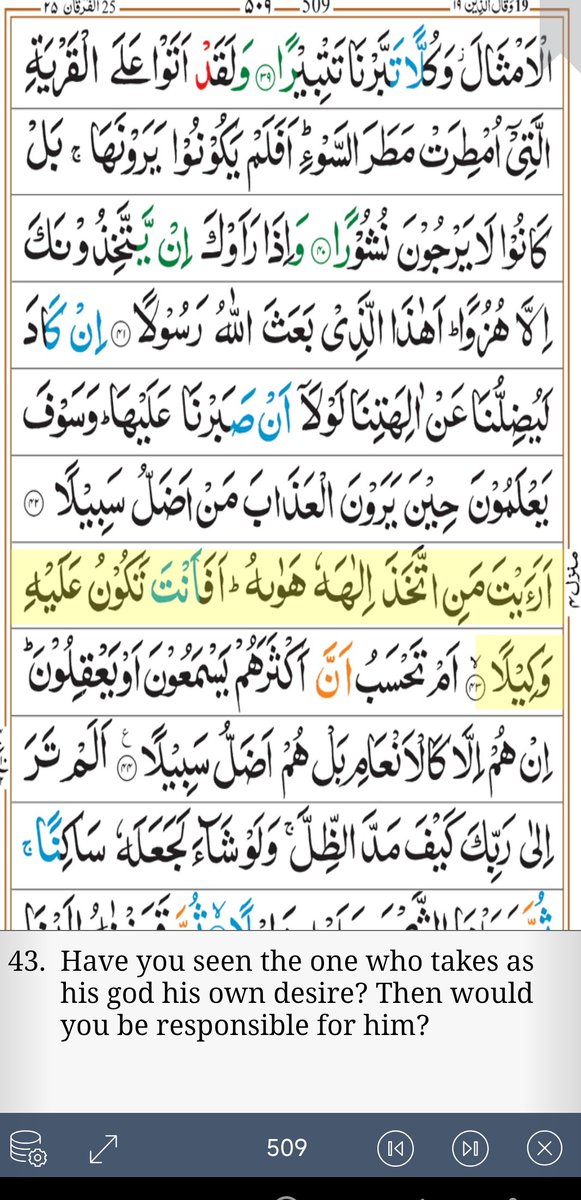 19 وقال الذين ١٩ 509 ٥٠٩ 25 الفرقان ٢٥
الْاَمْثَالَ ؗ وَكُلًّا تَبَّرْنَا تَتْبِيْرًا ﴿۳۹﴾ وَلَقَدْ اَتَوْا عَلَى الْقَرْيَةِ
الَّتِيْۤ اُمْطِرَتْ مَطَرَ السَّوْءِ ؕ اَفَلَمْ يَكُوْنُوْا يَرَوْنَهَا ۚ بَلْ
كَانُوْا لَا يَرْجُوْنَ نُشُوْرًا ﴿۴۰﴾ وَاِذَا رَاَوْكَ اِنْ يَّتَّخِذُوْنَكَ
اِلَّا هُزُوًا ؕ اَهٰذَا الَّذِيْ بَعَثَ اللّٰهُ رَسُوْلًا ﴿۴۱﴾ اِنْ كَادَ
لَيُضِلُّنَا عَنْ اٰلِهَتِنَا لَوْلَاۤ اَنْ صَبَرْنَا عَلَيْهَا ؕ وَسَوْفَ
يَعْلَمُوْنَ حِيْنَ يَرَوْنَ الْعَذَابَ مَنْ اَضَلُّ سَبِيْلًا ﴿۴۲﴾
اَرَءَيْتَ مَنِ اتَّخَذَ اِلٰهَهٗ هَوٰىهُ ؕ اَفَاَنْتَ تَكُوْنُ عَلَيْهِ
وَكِيْلًا ﴿۴۳﴾ اَمْ تَحْسَبُ اَنَّ اَكْثَرَهُمْ يَسْمَعُوْنَ اَوْ يَعْقِلُوْنَ ؕ
اِنْ هُمْ اِلَّا كَالْاَنْعَامِ بَلْ هُمْ اَضَلُّ سَبِيْلًا ﴿۴۴﴾ اَلَمْ تَرَ
اِلٰى رَبِّكَ كَيْفَ مَدَّ الظِّلَّ ۚ وَلَوْ شَآءَ لَجَعَلَهٗ سَاكِنًا ۚ
منزل ۴
43. Have you seen the one who takes as
his god his own desire? Then would
you be responsible for him?
509